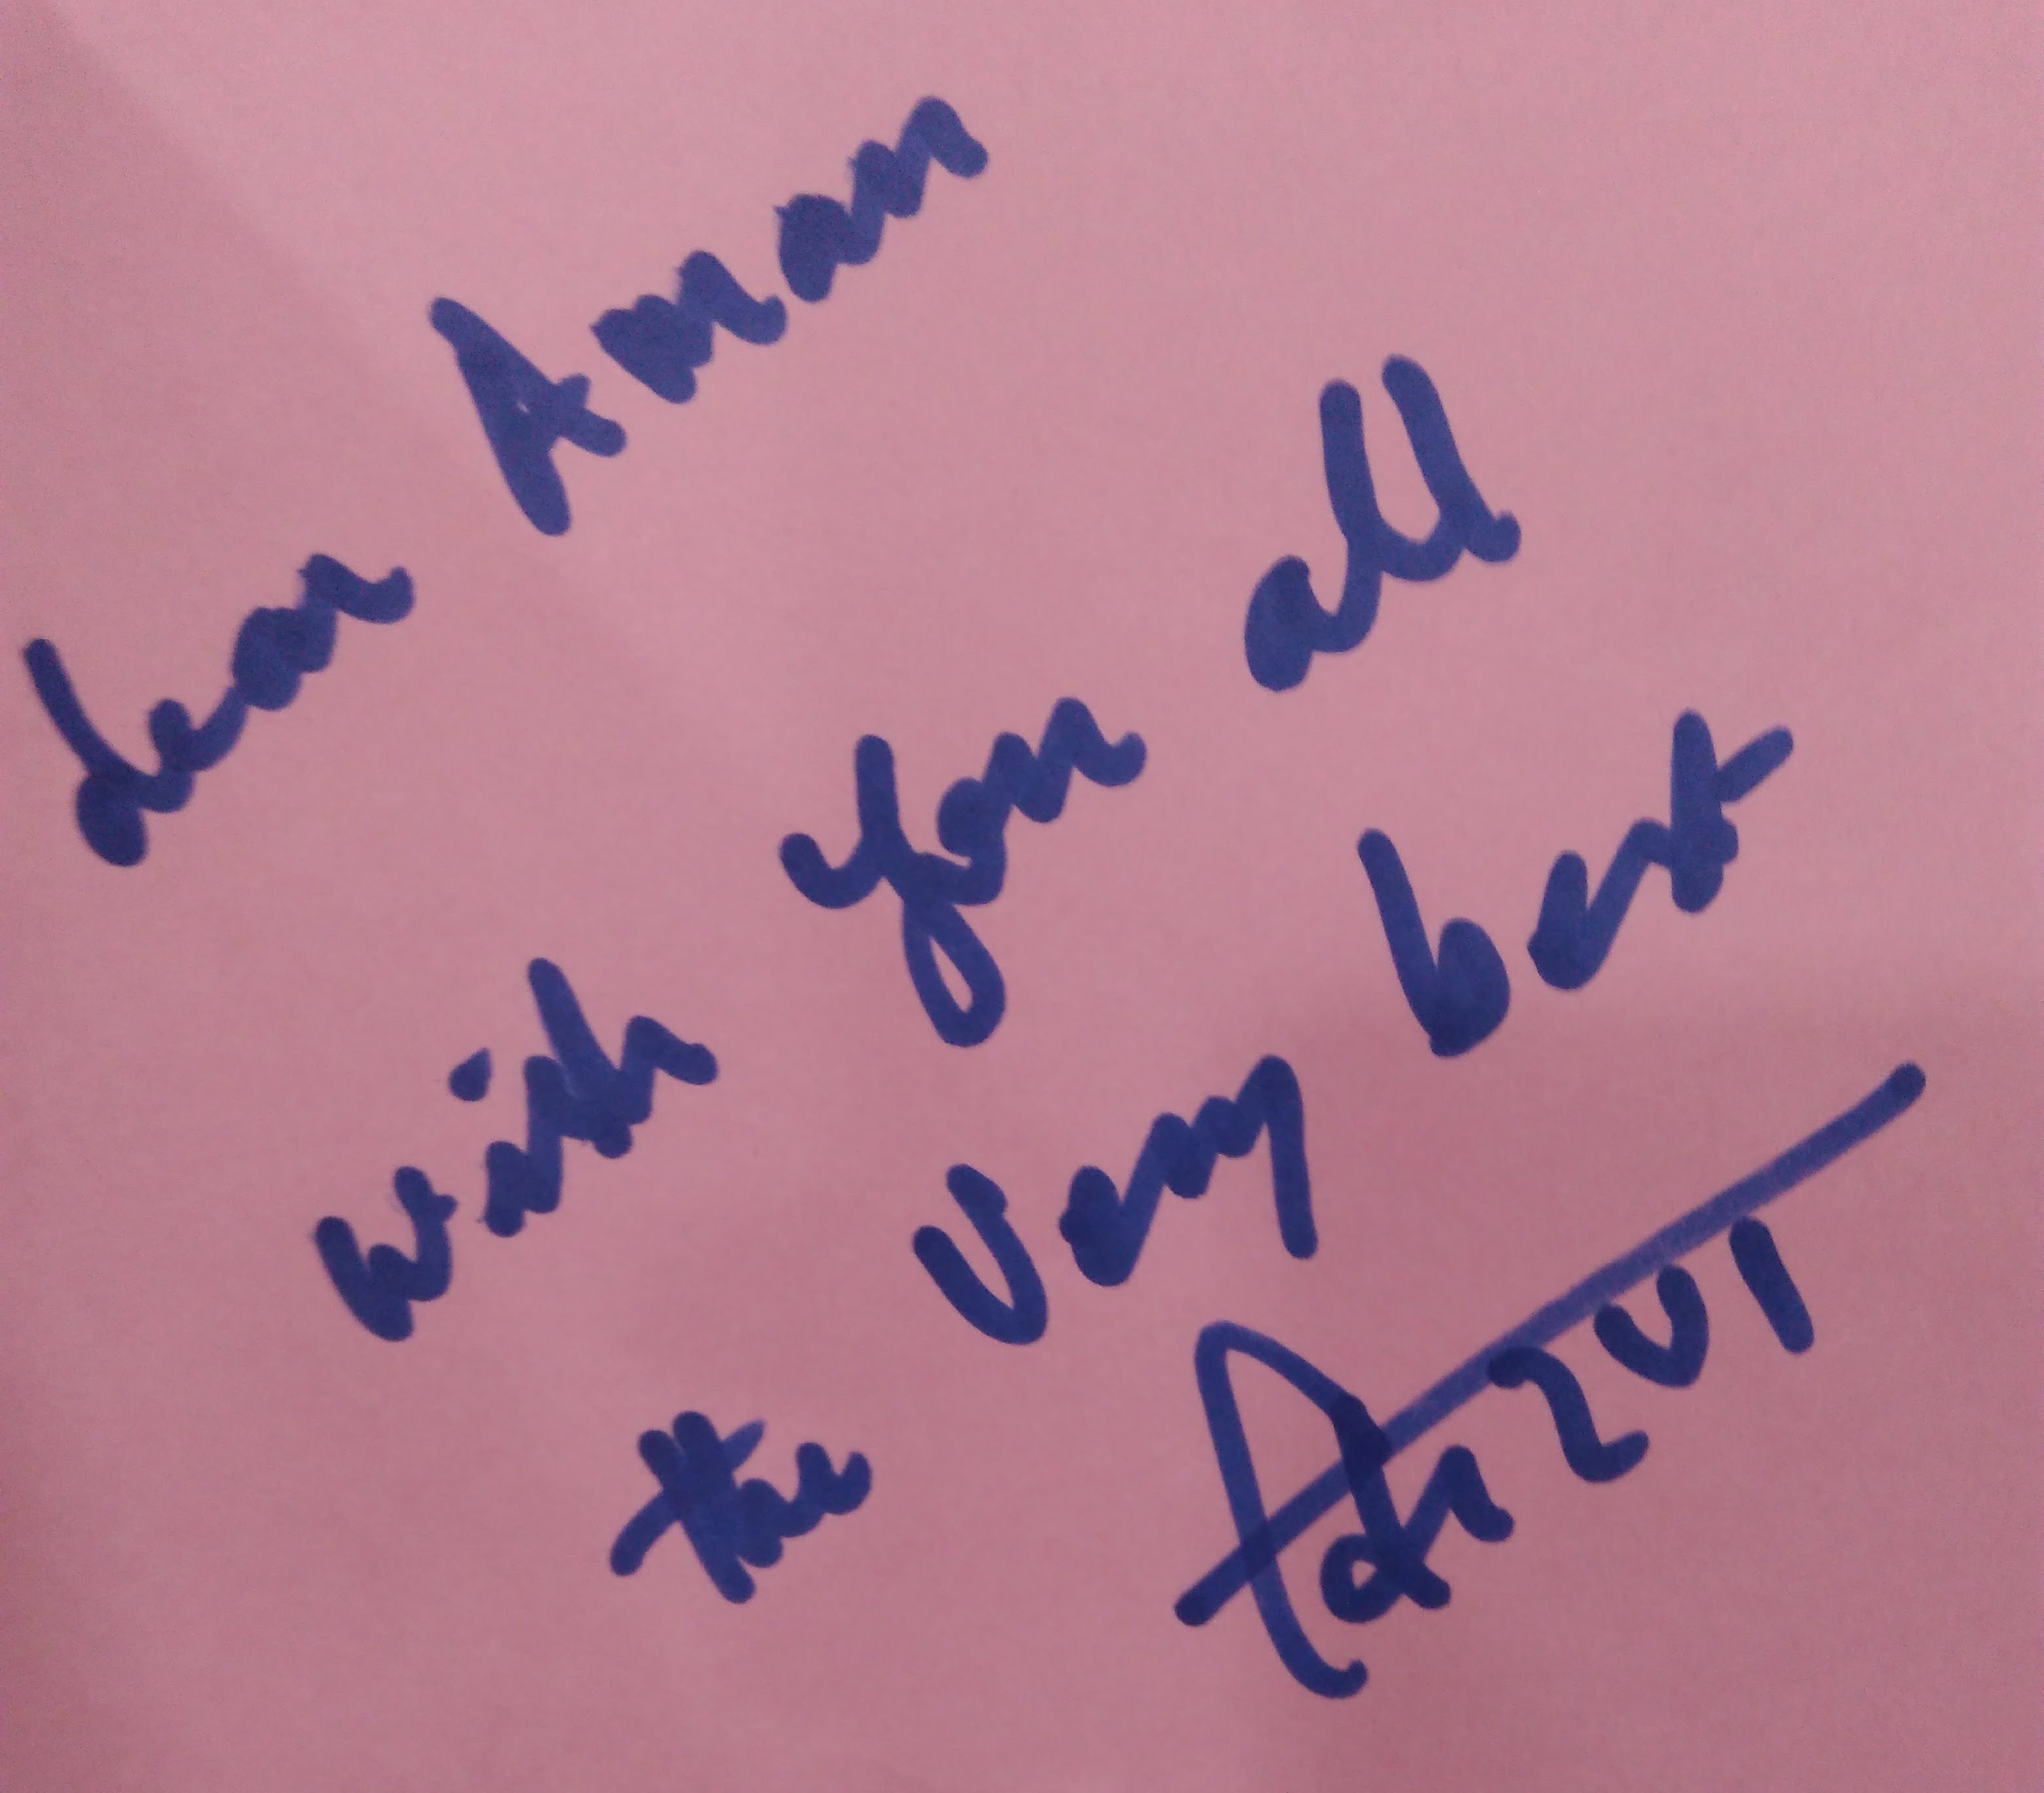 dear Aman
wish you all
the very best